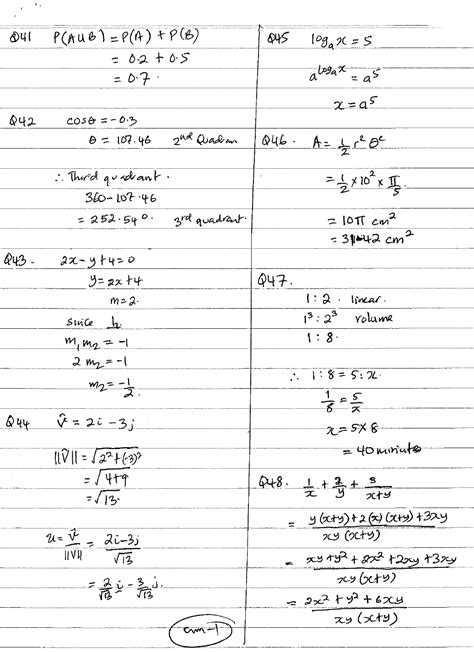 Q41 P(AUB) = P(A) + P(B)
= 0.2 + 0.5
= 0.7.
Q42 cosθ = -0.3
θ = 107.46 2nd Quadran
∴ Third quadrant.
360-107.46
= 252.54°. 3rd quadrant.
Q43. 2x-y+4=0
y=2x+4
m=2.
since
m₁m₂ = -1
2m₂ = -1
m₂ = -1/2.
Q44 v̂ = 2i - 3j
||v̂|| = √2²+(-3)²
= √4+9
= √13.
u = v̂/||v|| = 2i-3j/√13
= 2/√13 i - 3/√13 j.
Q45 logₐx = 5
a^logₐx = a⁵
x = a⁵
Q46. A = 1/2 r² θᶜ
= 1/2 × 10² × π/5
= 10π cm²
= 31.42 cm²
Q47.
1:2. linear.
1³:2³ volume
1:8.
∴ 1:8 = 5:x.
1/8 = 5/x
x = 5×8
= 40 minutes
Q48. 1/x + 2/y + 3/x+y
= y(x+y)+2(x)(x+y)+3xy/xy(x+y)
= xy+y²+2x²+2xy+3xy/xy(x+y)
= 2x²+y²+6xy/xy(x+y)